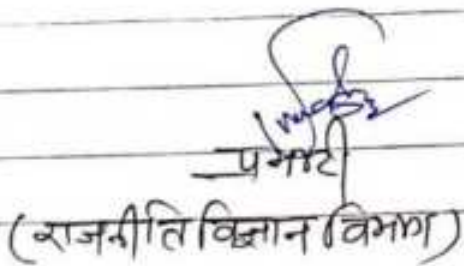 प्रभारी
(राजनीति विज्ञान विभाग)